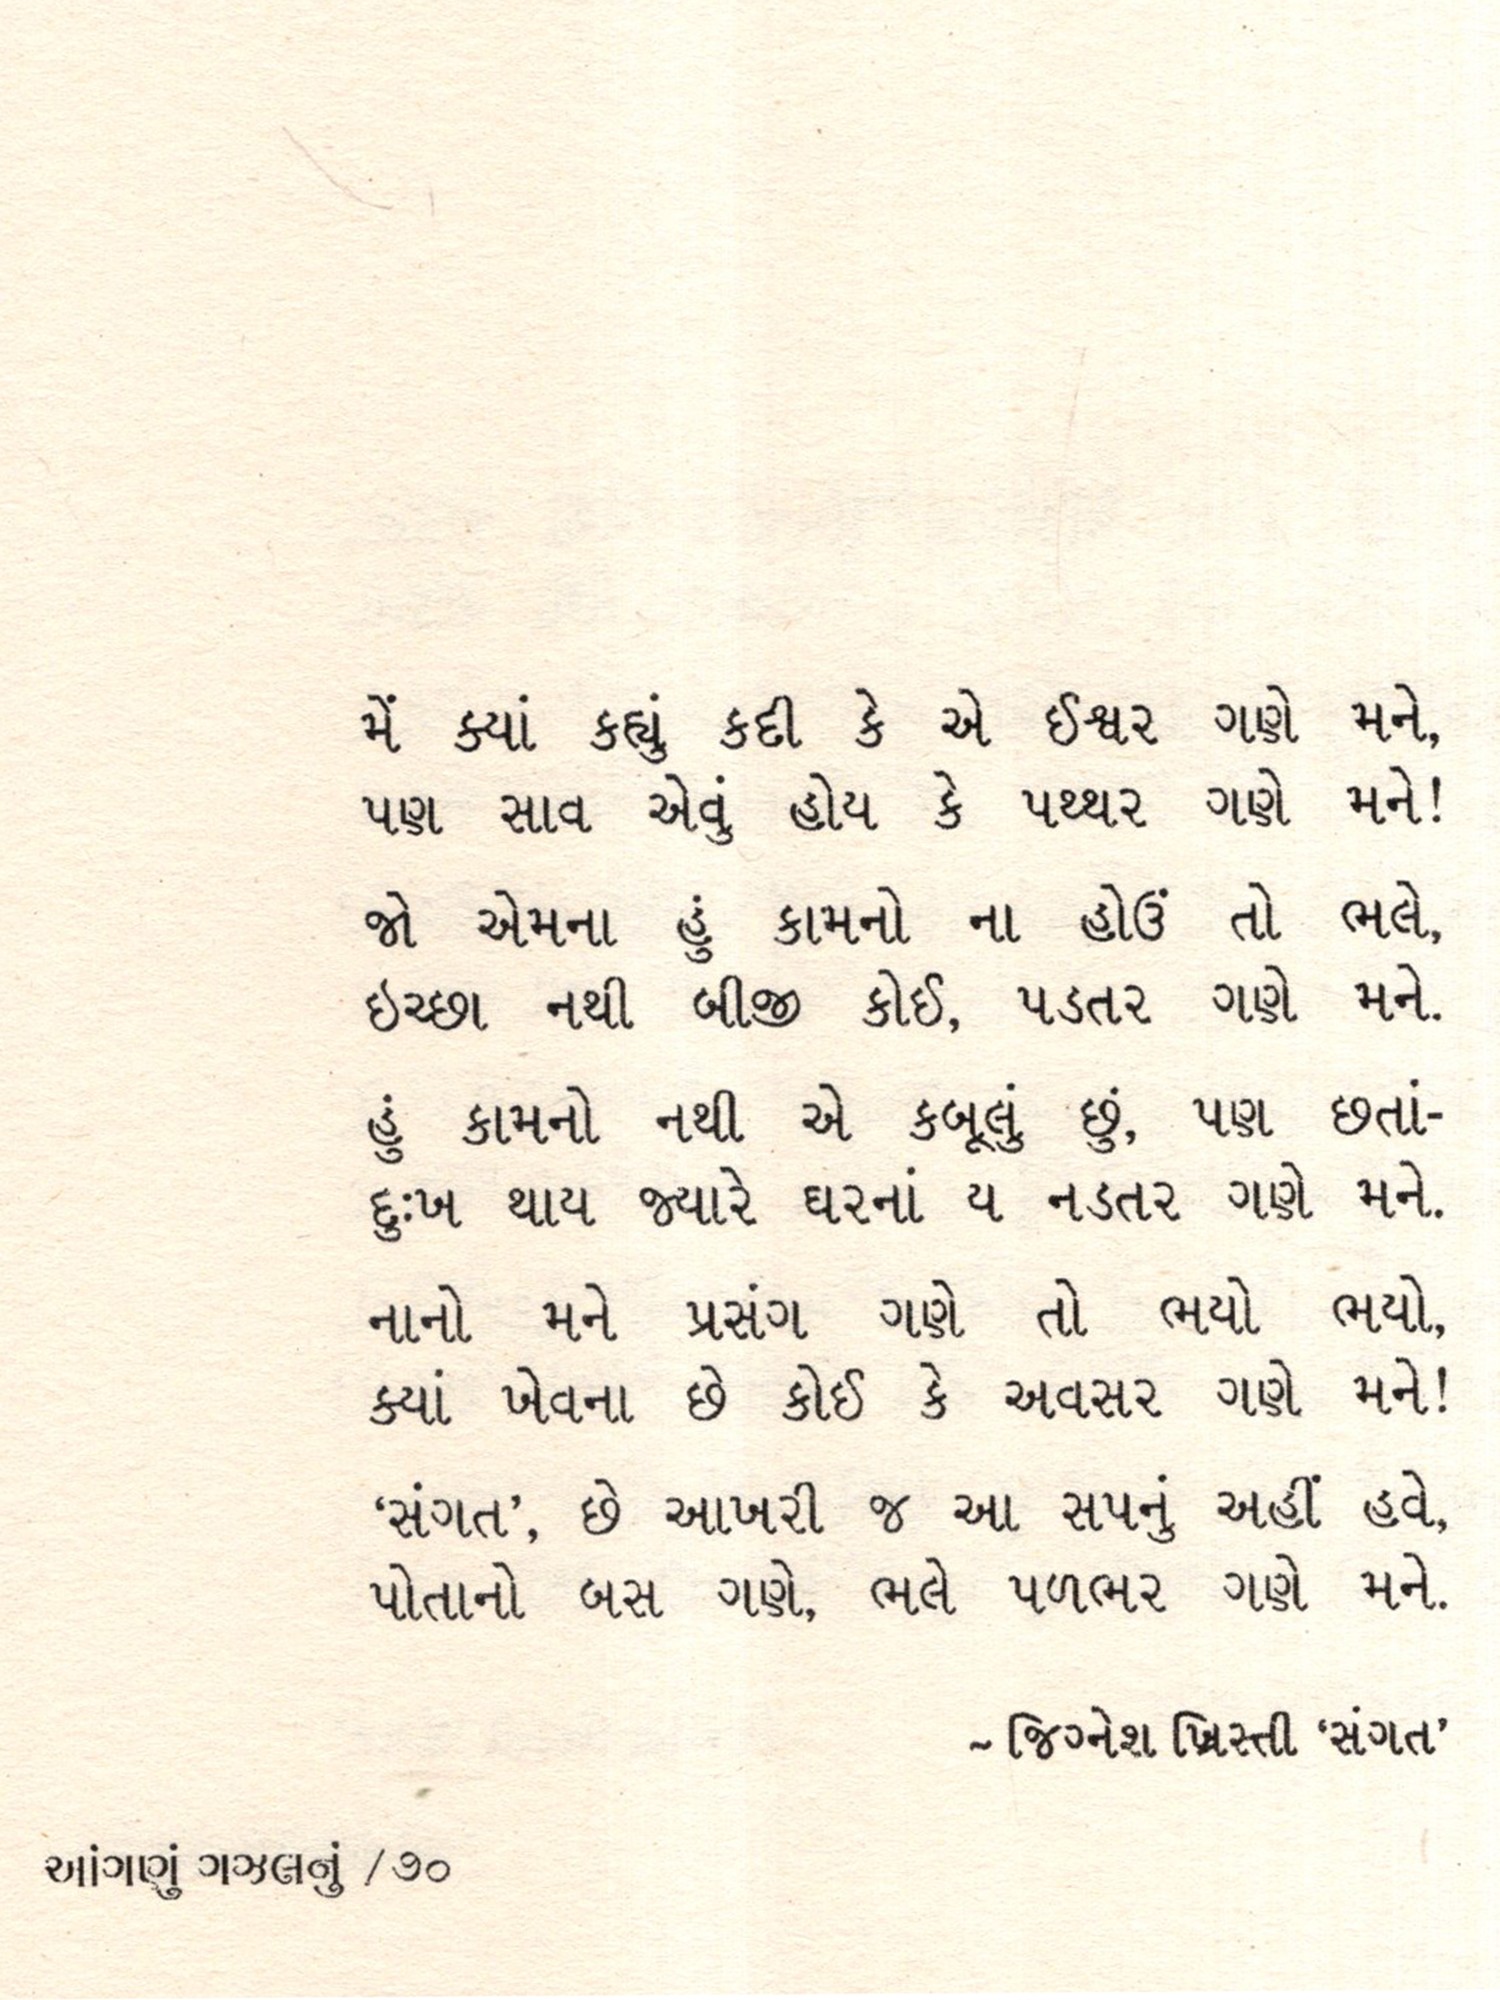 મેં ક્યાં કહ્યું કદી કે એ ઈશ્વર ગણે મને,
પણ સાવ એવું હોય કે પથ્થર ગણે મને!
જો એમના હું કામનો ના હોઉં તો ભલે,
ઇચ્છા નથી બીજી કોઈ, પડતર ગણે મને.
હું કામનો નથી એ કબૂલું છું, પણ છતાં-
દુઃખ થાય જ્યારે ઘરનાં ય નડતર ગણે મને.
નાનો મને પ્રસંગ ગણે તો ભયો ભયો,
ક્યાં ખેવના છે કોઈ કે અવસર ગણે મને!
‘સંગત’, છે આખરી જ આ સપનું અહીં હવે,
પોતાનો બસ ગણે, ભલે પળભર ગણે મને.
~ જિગ્નેશ ખ્રિસ્તી ‘સંગત’
આંગણું ગઝલનું / ૭૦